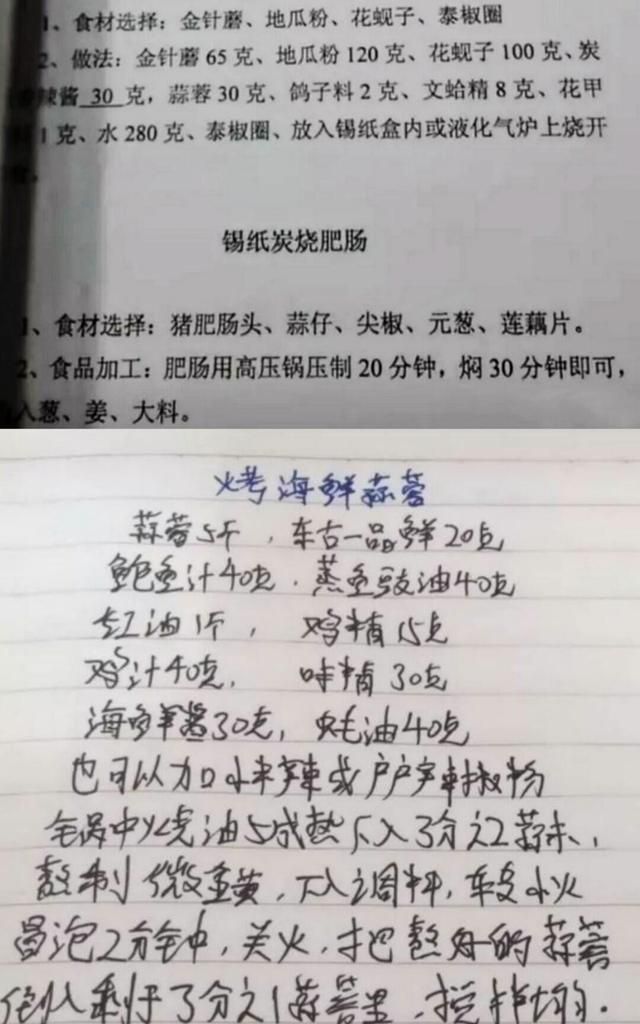 1、食材选择：金针蘑、地瓜粉、花蚬子、泰椒圈
2、做法：金针蘑 65 克、地瓜粉 120 克、花蚬子 100 克、炭
辣酱 30 克，蒜蓉 30 克、鸽子料 2 克、文蛤精 8 克、花甲
1 克、水 280 克、泰椒圈、放入锡纸盒内或液化气炉上烧开
锡纸炭烧肥肠
1、食材选择：猪肥肠头、蒜仔、尖椒、元葱、莲藕片。
2、食品加工：肥肠用高压锅压制 20 分钟，焖 30 分钟即可，
入葱、姜、大料。
烤海鲜蒜蓉
蒜蓉5斤，东古一品鲜20克
鲍鱼汁40克．蒸鱼豉油40克
红油1斤，鸡精15克
鸡汁40克，味精30克
海鲜酱30克，蚝油40克
也可以加小米辣或户户辣椒粉
锅中火烧油5成热下入3分之2蒜末，
熬制微金黄，下入调料，转小火
冒泡2分钟，关火，把熬好的蒜蓉
倒入剩于3分之1蒜蓉里，搅拌均匀．